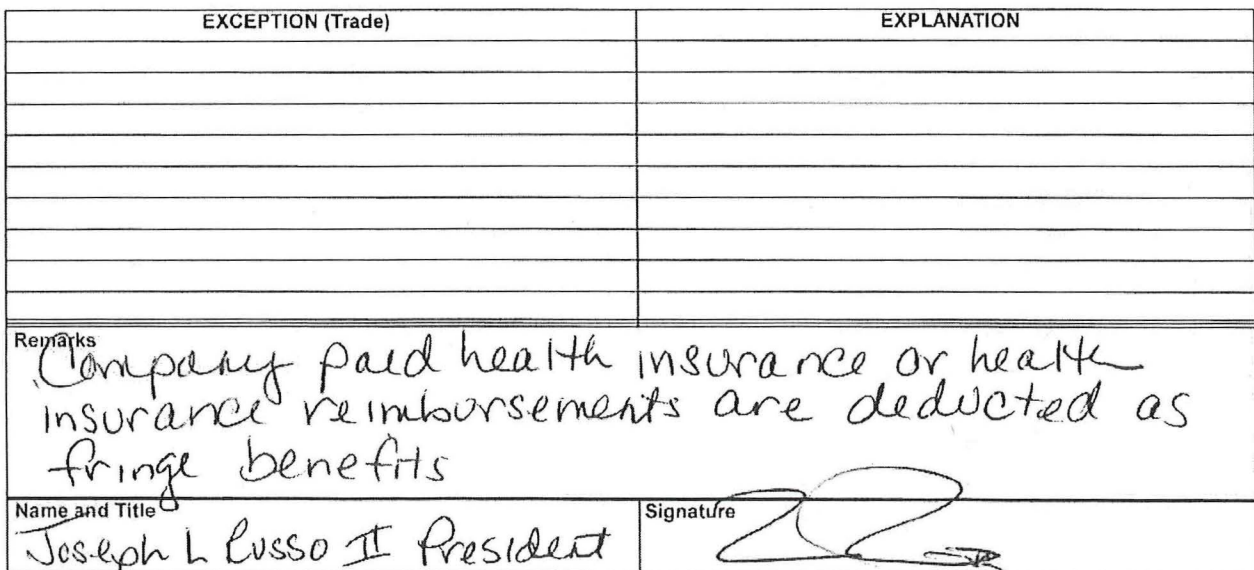 EXCEPTION (Trade) EXPLANATION
Remarks
Company paid health insurance or health
insurance reimbursements are deducted as
fringe benefits
Name and Title Signature
Joseph L Russo II President